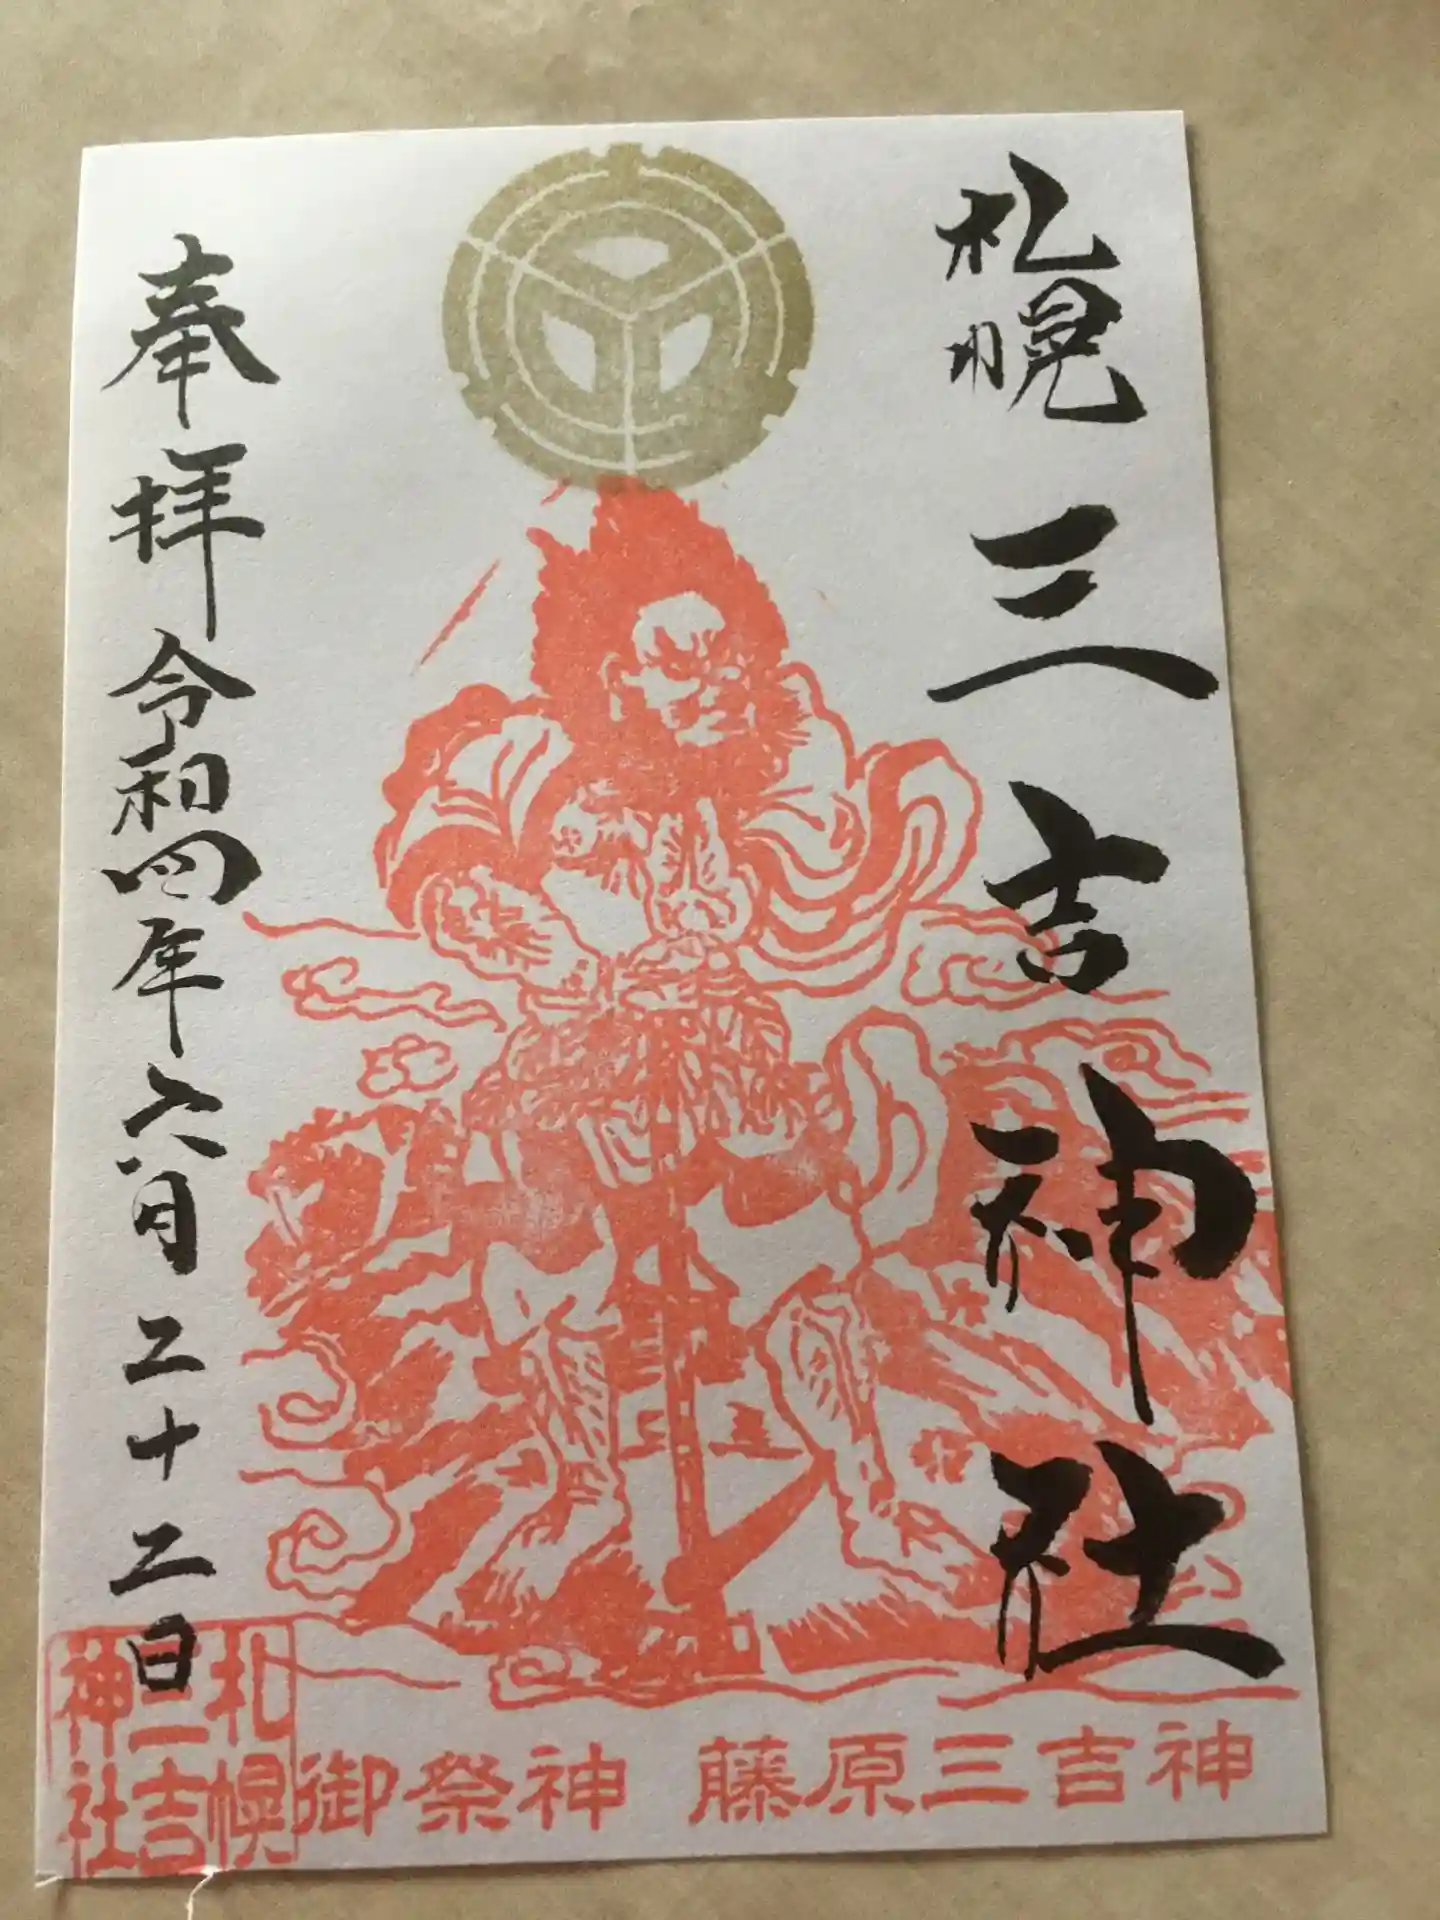 札幌三吉神社
奉拝 令和四年六月二十二日
札幌
三吉
神社
御祭神 藤原三吉神